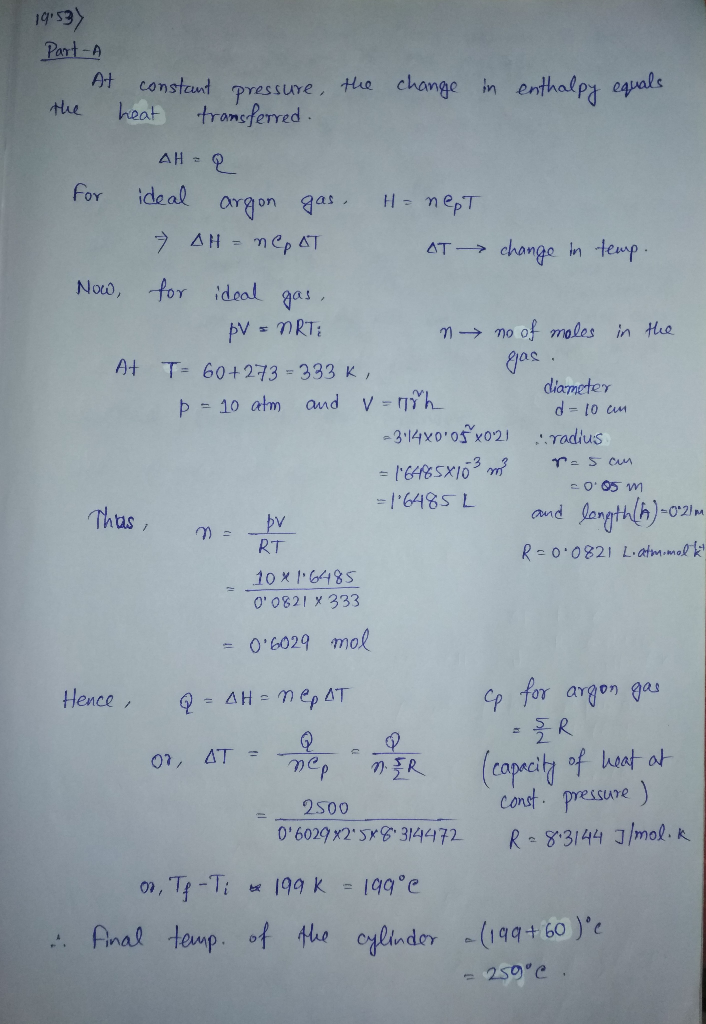 19.53)
Part-A
At constant pressure, the change in enthalpy equals
the heat transferred.
ΔH = Q
For ideal argon gas, H = nCpT
⇒ ΔH = nCpΔT
ΔT → change in temp.
Now, for ideal gas,
pV = nRTi
n → no of moles in the
gas.
At T = 60+273 = 333 K,
p = 10 atm and V = πr²h
= 3.14×0.05²×0.21
= 1.6485×10⁻³ m³
= 1.6485 L
diameter
d = 10 cm
∴ radius
r = 5 cm
= 0.05 m
and length(h) = 0.21m
R = 0.0821 L.atm.mol⁻¹k⁻¹
Thus, n = pV/RT
= 10 × 1.6485 / 0.0821 × 333
= 0.6029 mol
Hence, Q = ΔH = nCpΔT
or, ΔT = Q/nCp = Q/n.5/2R
= 2500 / 0.6029×2.5×8.314472
Cp for argon gas
= 5/2 R
(capacity of heat at
const. pressure)
R = 8.3144 J/mol.K
or, Tf - Ti = 199 K = 199°C
∴ final temp. of the cylinder = (199+60)°C
= 259°C.